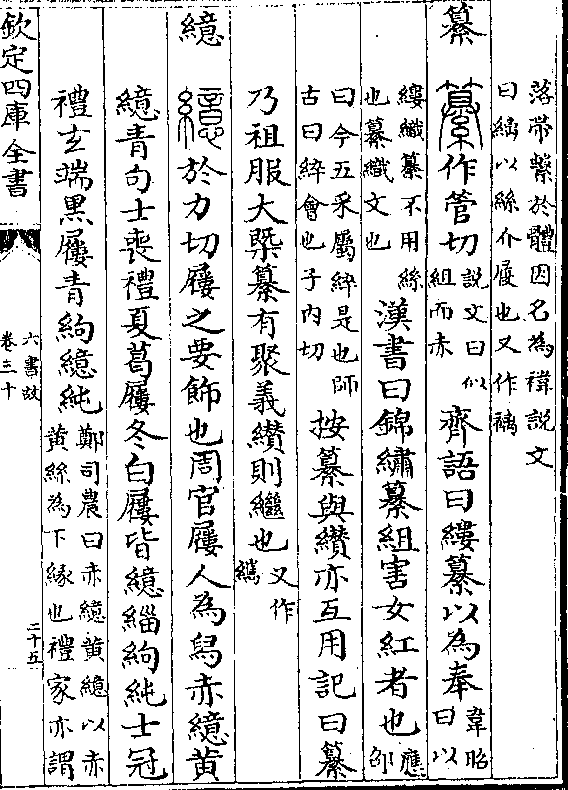 落帶繫於體因名為褘說文
曰縭以絲介屨也又作褵
纂
作管切
說文曰似
組而赤
齊語曰縷纂以為奉
韋昭
曰以
縷織纂不用絲
也纂織文也
漢書曰錦繡纂組害女紅者也
應
邵
曰今五采屬綷是也師
古曰綷會也子内切
按纂與纘亦互用記曰纂
乃祖服大槩纂有聚義纘則繼也
又作
繶
於力切屨之要飾也周官屨人為舄赤繶黄
繶青句士喪禮夏葛屨冬白屨皆繶緇絇純士冠
禮玄端黒屨青絇繶純
鄭司農曰赤繶黄繶以赤
黄絲為下緣也禮家亦謂
欽定四庫全書
六書故
卷三十
二十五